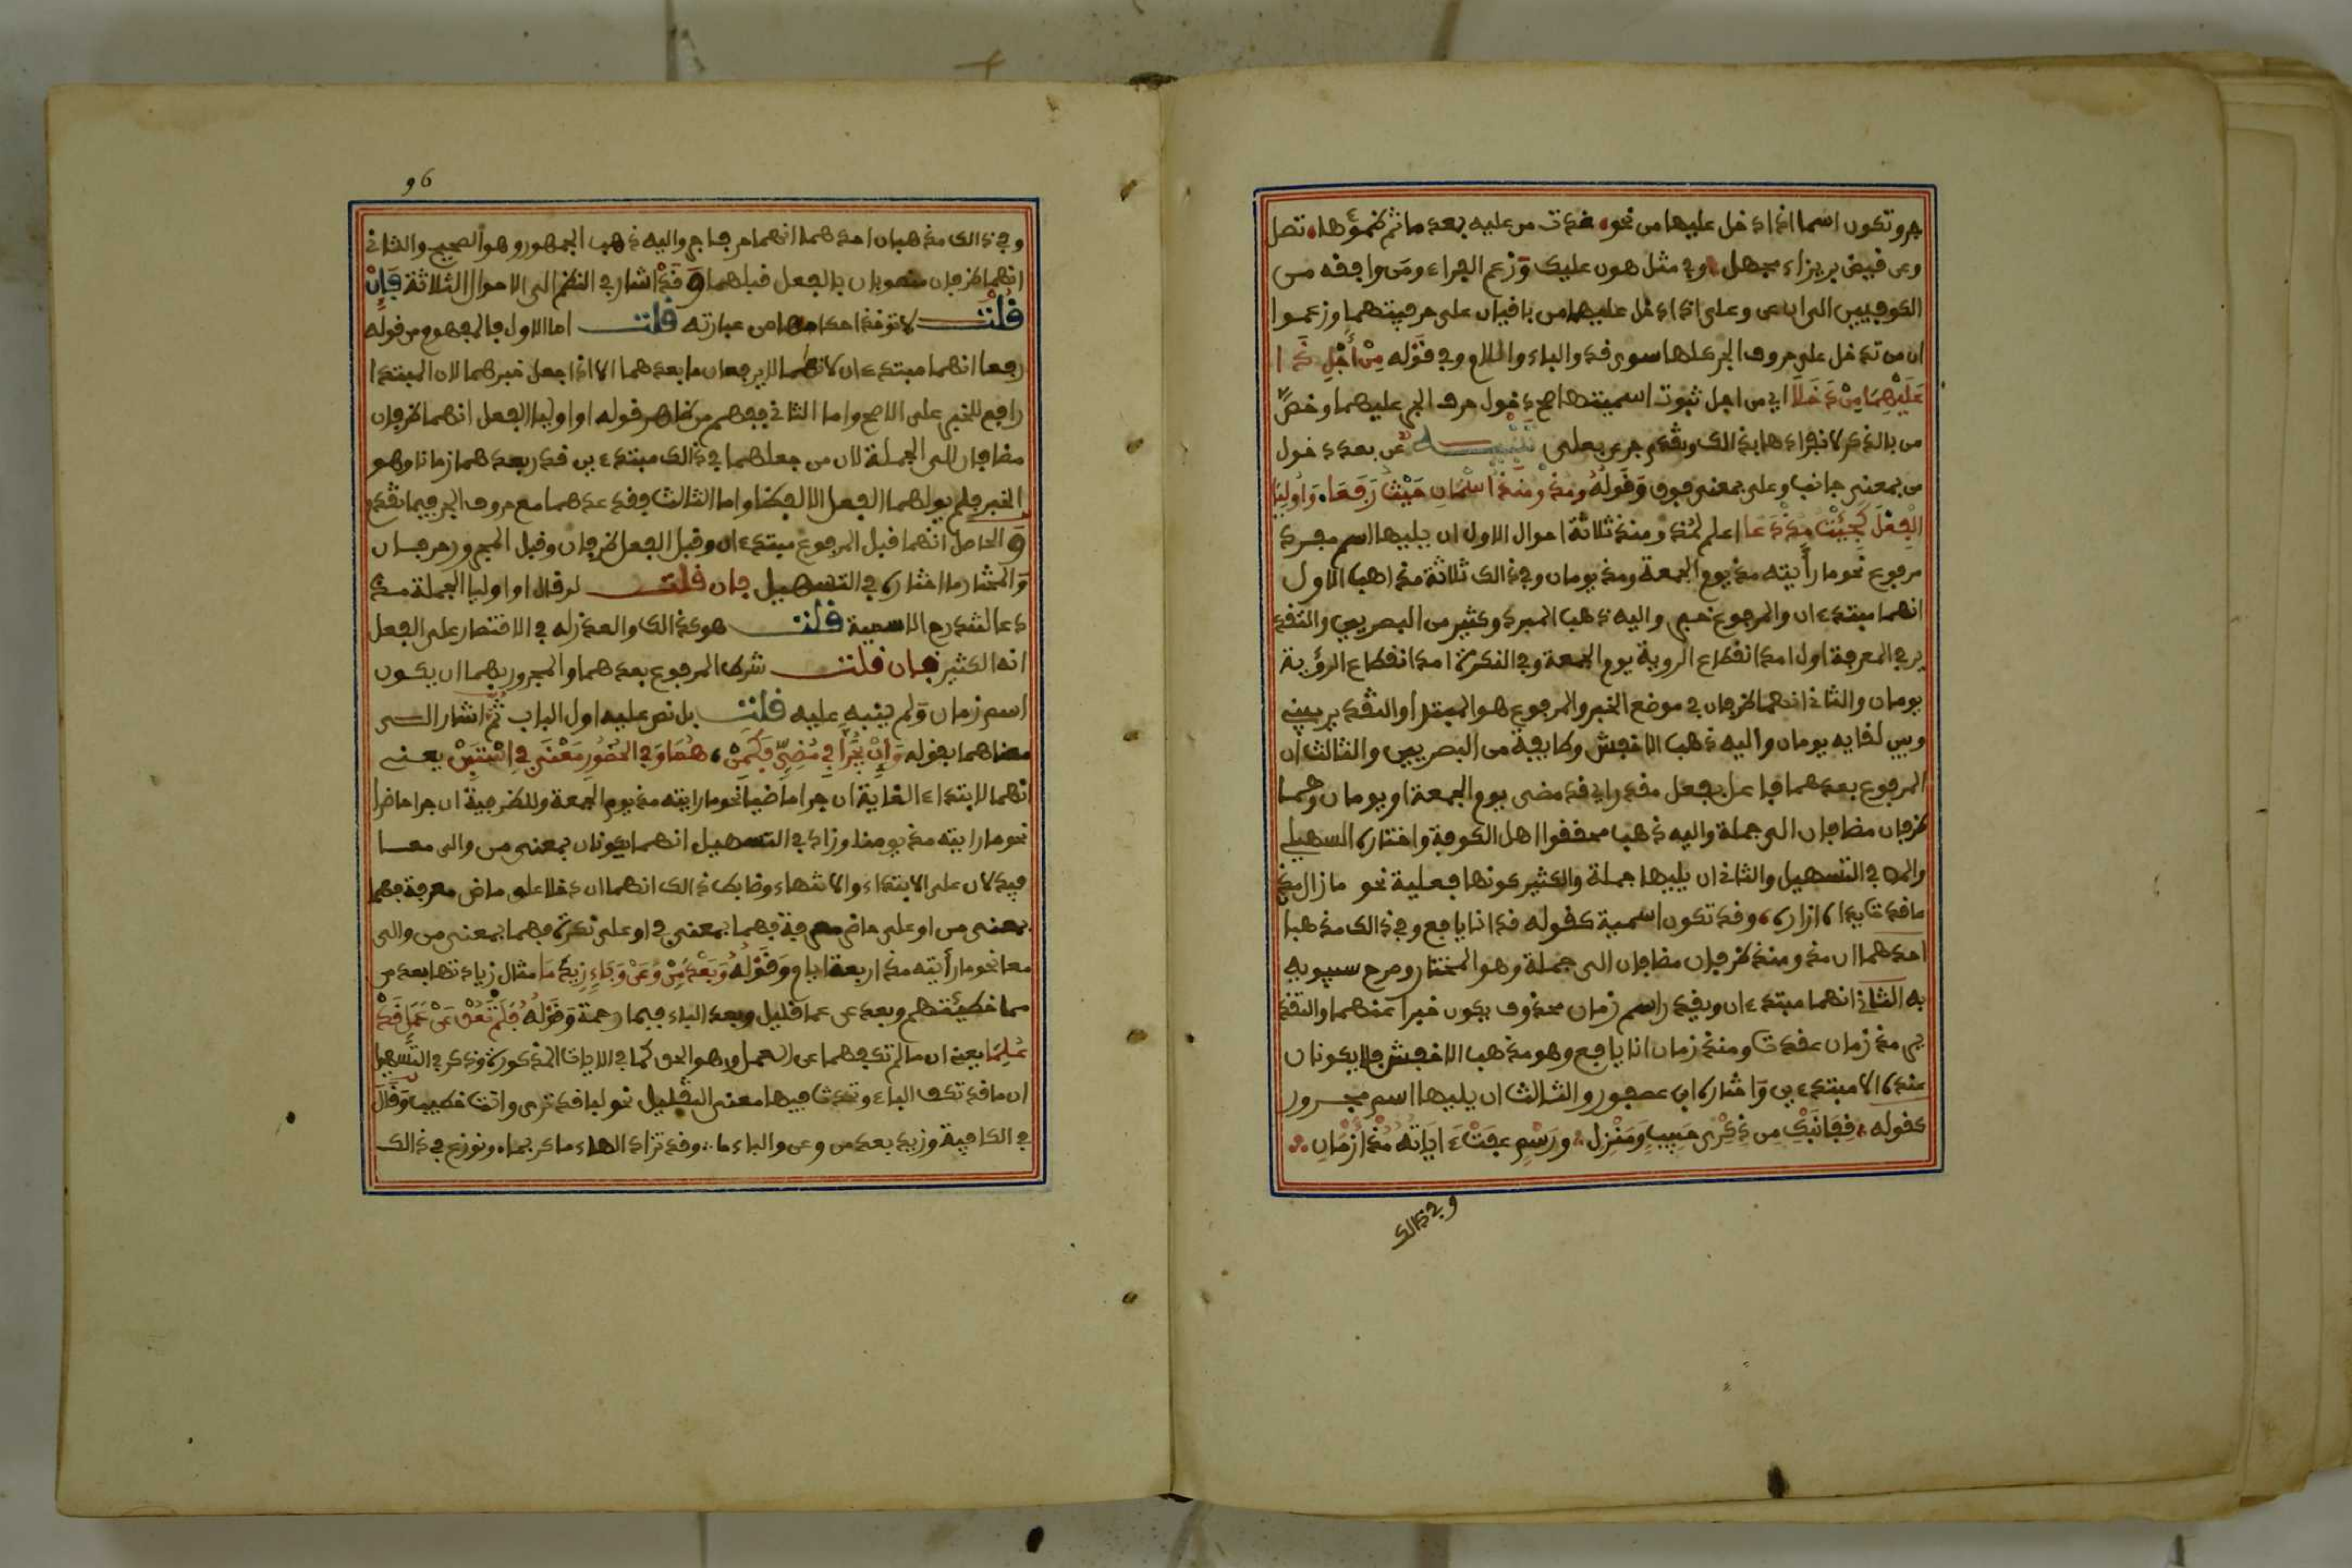 جر وتكون اسما اذا دخل عليها من نحو غدت من عليه بعد ما ثم ظمؤها تصل
وعن قيض بزيزاء مجهل وفي مثل هون عليك وزعم الفراء ومن وافقه من
الكوفيين الى ان عن وعلى اذا دخل عليهما من باقيان على حرفيتهما وزعموا
ان من تدخل على حروف الجر كلها سوى مذ والباء واللام وفي قوله مِنْ أَجْلِ ذَا
عَلَيْهِمَا مِنْ دَخَلَا اي من اجل ثبوت اسميتهما صح دخول حرف الجر عليهما وخص
من بالذكر لانفرادها بذالك وبقدر جرى بعلى تنبيه عن بعد دخول
من بمعنى جانب وعلى بمعنى فوق وَقَوْلُهُ ومذ ومنذ اسْمَانِ حَيْثُ رَفَعَا، وَأُولِيَا
الْفِعْلَ كَجِئْتُ مُذْ دَعَا اعلم لمذ ومنذ ثلاثة احوال الاول ان يليها اسم مفرد
مرفوع نحو ما رأيته مذ يوم الجمعة ومذ يومان وفي ذالك ثلاثة مذاهب الاول
انهما مبتدءان والمرفوع خبر واليه ذهب المبرد وكثير من البصريين والتقد
ير في المعرفة اول امد انقطاع الروية يوم الجمعة وفي النكرة امد انقطاع الرؤية
يومان والثاني انهما ظرفان في موضع الخبر والمرفوع هو المبتدا والتقدير بيني
وبين لقايه يومان واليه ذهب الاخفش وطايفة من البصريين والثالث ان
المرفوع بعدهما فاعل بفعل مقدر اي قد مضى يوم الجمعة او يومان وهما
ظرفان مضافان الى جملة واليه ذهب محققوا اهل الكوفة واختاره السهيلي
والمص في التسهيل والثاني ان يليها جملة والكثير كونها فعلية نحو ما زال مذ
ما قدت يداه ازاره، وقد تكون اسمية كقوله قد انا يافع وفي ذالك مذهبا
احدهما ان مذ ومنذ ظرفان مضافان الى جملة وهو المختار وصرح سيبويه
به الثاني انهما مبتدءان ويقدر اسم زمان محذوف يكون خبرا عنهما والتقد
ير مذ زمان عقدت ومنذ زمان انا يافع وهو مذهب الاخفش فلا يكونان
عنده الا مبتدءين واختاره ابن عصفور والثالث ان يليها اسم مجرور
كقوله، قفا نَبْكِ من ذِكْرَى حَبِيبٍ وَمَنْزِلِ، ورَسْمٍ عفت ءايَاتُهُ مُنْذُ أَزْمَانِ
وفي ذالك
96
وفي ذالك مذهبان احدهما انهما حرفا جر واليه ذهب الجمهور وهو الصحيح والثاني
انهما ظرفان منصوبان بالفعل قبلهما وَقَدْ اشار في النظم الى الاحوال الثلاثة فَإِنْ
قُلْتَ لا توخذ احكامها من عبارته قلت اما الاول فالمفهوم من قوله
رفعا انهما مبتدءان لانهما لا يرفعان ما بعدهما الا اذا جعل خبرهما لان المبتدا
رافع للخبر على الاصح واما الثاني ففهم من ظاهر قوله او اوليا الفعل انهما ظرفان
مضافان الى الجملة لان من جعلهما في ذالك مبتدءين قدر بعدهما زمانا وهو
الخبر فلم يولهما الفعل الا لفظا واما الثالث فقد عدهما مع حروف الجر فيما تقدم
والحاصل انهما قبل المرفوع مبتدءان وقبل الفعل ظرفان وقبل المجرور حرفان
وَالمختار ما اختاره في التسهيل فان قلت لو قال او اوليا الجملة مذ
دعا لشدرج الاسمية قلت هو كذالك والعذر له في الاقتصار على الفعل
انه الكثير فان قلت شرط المرفوع بعدهما والمجرور بهما ان يكون
اسم زمان وَلم ينبه عليه قلت بل نص عليه اول الباب ثُمَّ اشار الى
معناهما بقوله وَإِنْ يَجُرَّا فِي مُضِيٍّ فَكَمِنْ، هُمَا وَفِي الحُضُورِ مَعْنَى فِي اسْتَبِنْ يعني
انهما لابتداء الغاية ان جرا ماضيا نحو ما رايته مذ يوم الجمعة وللظرفية ان جرا حاضرا
نحو ما رايته مذ يومنا وزاد في التسهيل انهما يكونان بمعنى من والى معا
فيدلان على الابتداء والانتهاء وضابط ذالك انهما ان دخلا على ماض معرفة فهما
بمعنى من او على حاضر معرفة فهما بمعنى في او على نكرة فهما بمعنى من والى
معا نحو ما رأيته مذ اربعة ايام وَقَوْلُهُ وَبَعْدَ مِنْ وَعَنْ وَبَاءٍ زِيدَ مَا مثال زيادتها بعد من
مما خطيئتهم وبعد عن عما قليل وبعد الباء فبما رحمة وَقَوْلُهُ فَلَمْ تَعُقْ عَنْ عَمَلٍ قَدْ
عُلِمَا يعني ان ما لم تكفهما عن العمل وهو الحق كما في الايات المذكورة وذكر في التسهيل
ان ما قد تكف الباء وتحدث فيها معنى التقليل نحو لبما قد ترى وانت خطيب وَقَالَ
في الكافية وزيد بعد من وعن والباء ما، وقد تزاد الهاء ما كربما، ونوزع في ذالك